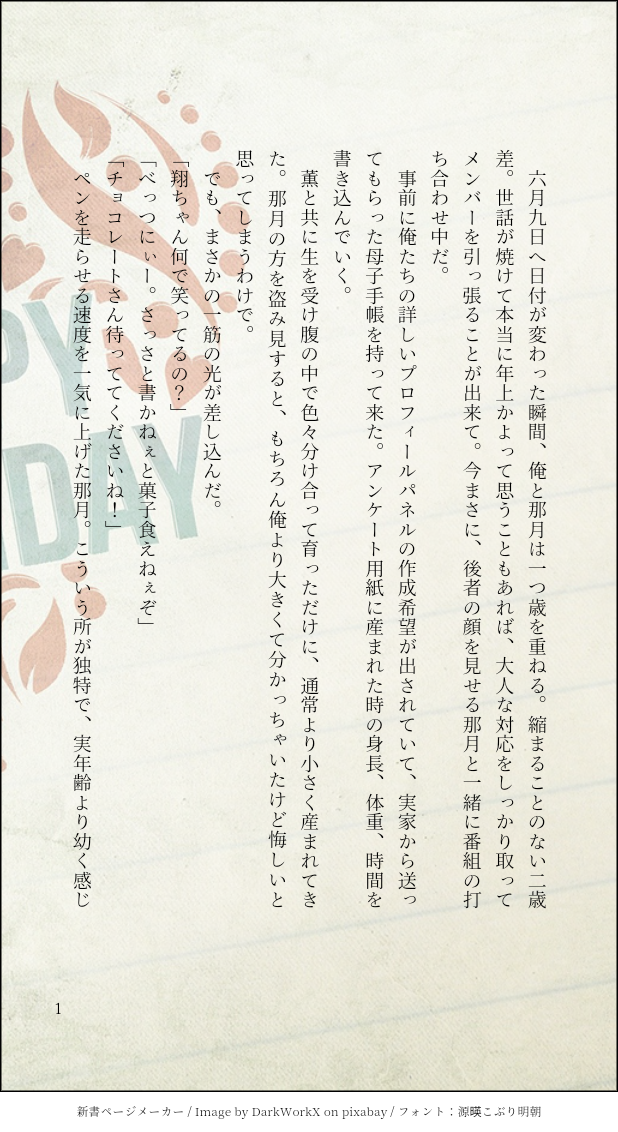 六月九日へ日付が変わった瞬間、俺と那月は一つ歳を重ねる。縮まることのない二歳
差。世話が焼けて本当に年上かよって思うこともあれば、大人な対応をしっかり取って
メンバーを引っ張ることが出来て。今まさに、後者の顔を見せる那月と一緒に番組の打
ち合わせ中だ。
　事前に俺たちの詳しいプロフィールパネルの作成希望が出されていて、実家から送っ
てもらった母子手帳を持って来た。アンケート用紙に産まれた時の身長、体重、時間を
書き込んでいく。
　薫と共に生を受け腹の中で色々分け合って育っただけに、通常より小さく産まれてき
た。那月の方を盗み見すると、もちろん俺より大きくて分かっちゃいたけど悔しいと
思ってしまうわけで。
　でも、まさかの一筋の光が差し込んだ。
「翔ちゃん何で笑ってるの？」
「べっつにぃー。さっさと書かねぇと菓子食えねぇぞ」
「チョコレートさん待っててくださいね！」
　ペンを走らせる速度を一気に上げた那月。こういう所が独特で、実年齢より幼く感じ
PY
HDAY
1
新書ページメーカー / Image by DarkWorkX on pixabay / フォント：源暎こぶり明朝